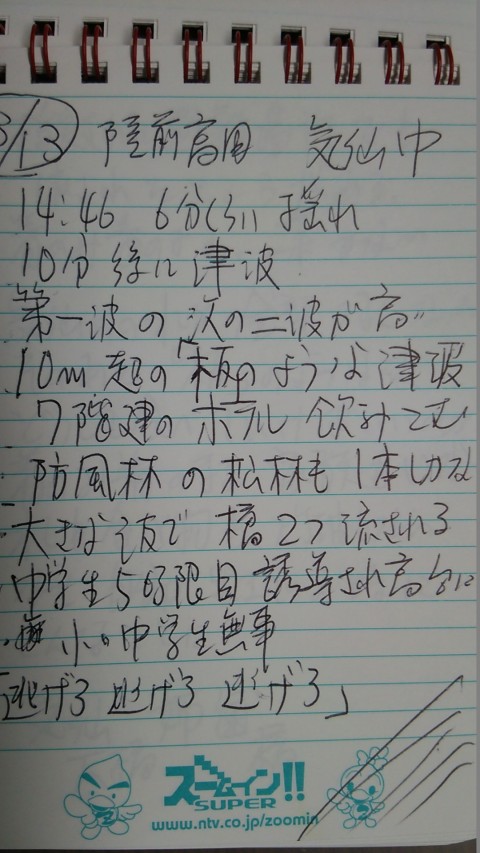 3/13 陸前高田 気仙中
14:46 6分くらい揺れ
10分後に津波
第一波の次の二波が高い
10m超の「板のような津波
7階建のホテル飲みこむ
防風林の松林も1本しかな
大きな波で橋2つ流される
中学生5時限目 誘導され高台に
小・中学生無事
「逃げろ 逃げろ 逃げろ」
ズームイン!!
SUPER
www.ntv.co.jp/zoomin